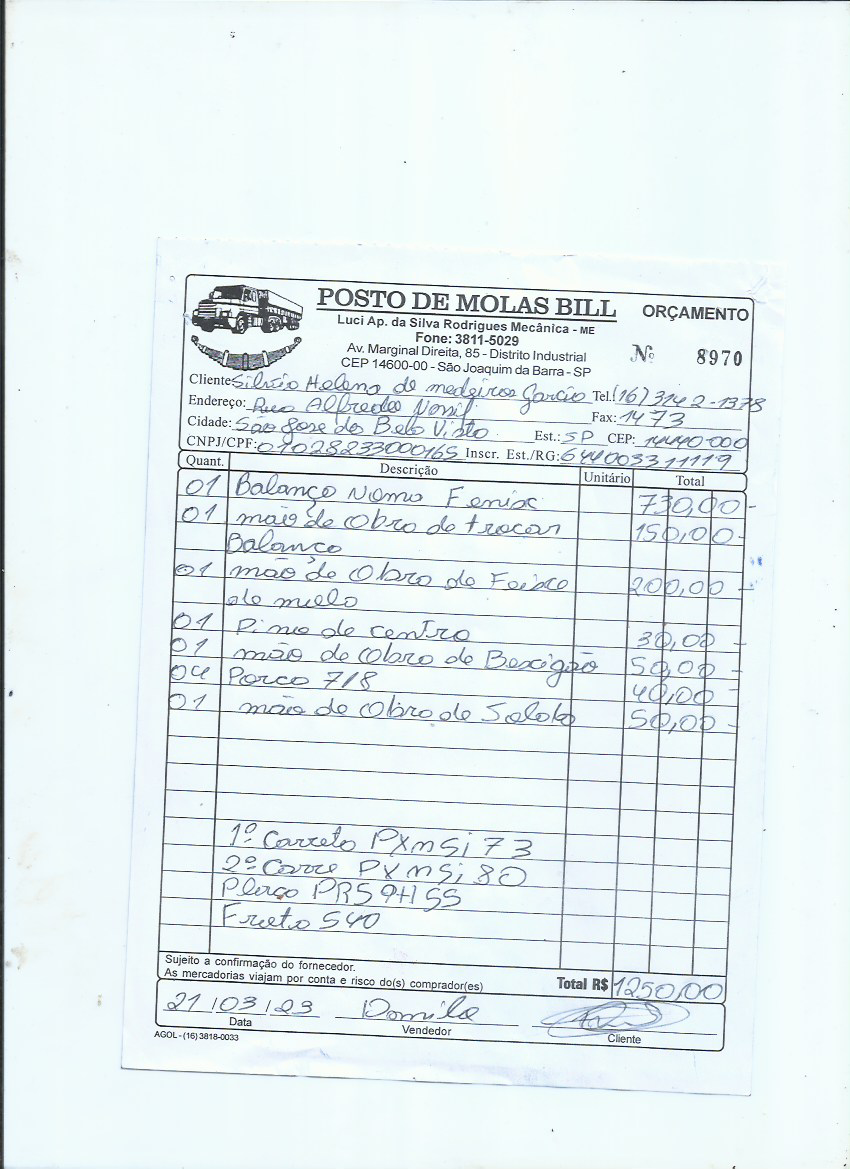 POSTO DE MOLAS BILL
ORÇAMENTO
Luci Ap. da Silva Rodrigues Mecânica - ME
Fone: 3811-5029
Av. Marginal Direita, 85 - Distrito Industrial
Nº 8970
CEP 14600-00 - São Joaquim da Barra - SP
Cliente Silvio Heleno de medeiros Garcia Tel. (16) 3142-1378
Endereço: Rua Alfredo Fax: 1473
Cidade: São Jose da Bela Vista Est.: SP CEP: 14440-000
CNPJ/CPF: 01028233000165 Inscr. Est./RG: 644003311119
Quant. Descrição Unitário Total
01 Balanço Nomo Fenix 730,00
01 mão de Obra de trocar 150,00
Balanço
01 mão de Obra de Feixe 200,00
de
01 Pino de centro 30,00
01 mão de Obra de Bexigão 50,00
04 Porca 7/8 40,00
01 mão de Obra de 50,00
1º Carreta PXmSi73
2º Carre PXmSi80
Placa PRS9H55
Frota 540
Sujeito a confirmação do fornecedor.
As mercadorias viajam por conta e risco do(s) comprador(es)
Total R$ 1250,00
21/03/23
Data
Vendedor
Cliente
AGOL - (16) 3818-0033